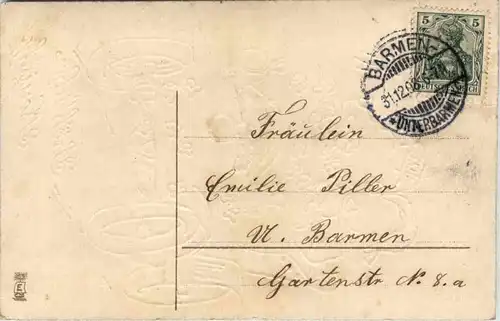 5 5
BARMEN-
31.12.08
*UNTERBARMEN
Fräulein
Emilie Piller
U. Barmen
Gartenstr N. 8.a
E